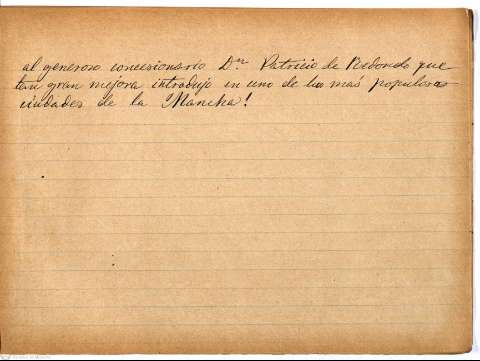 al generoso concesionario Dn Patricio de Redondo que
tan gran mejora introdujo en uno de las más populosas
ciudades de la Mancha!